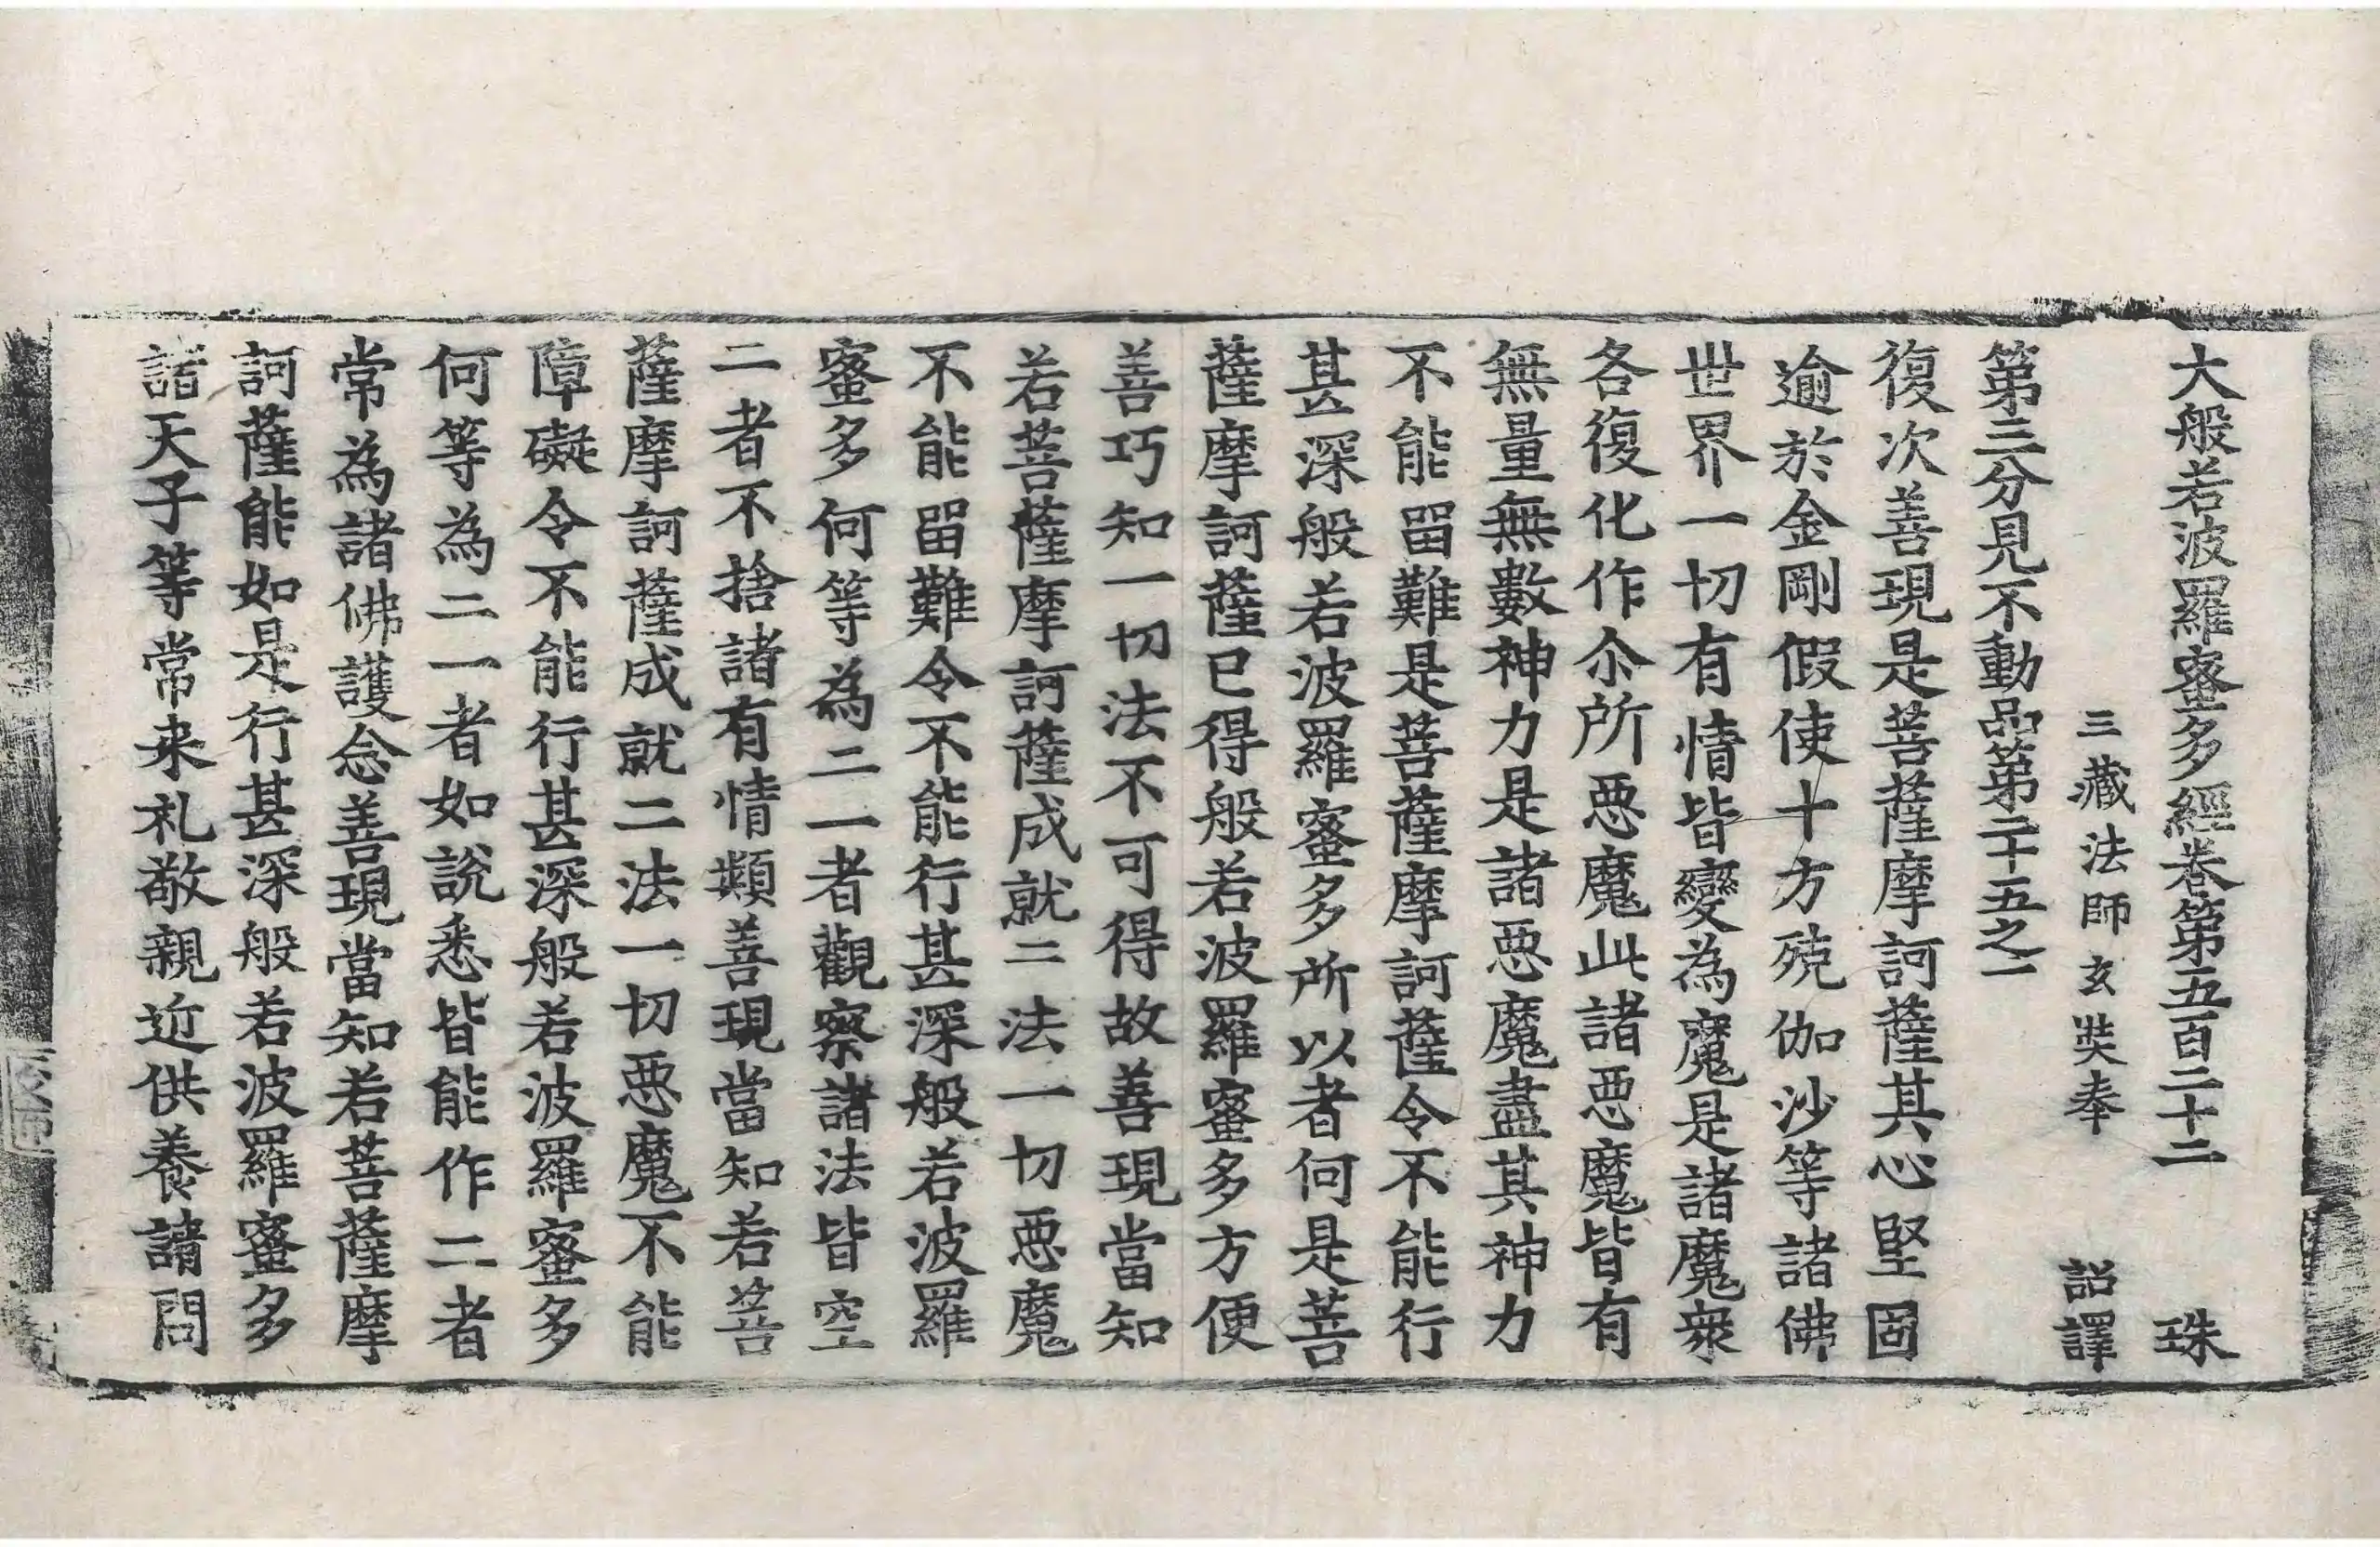 大般若波羅蜜多經卷第五百二十二 珠
三藏法師玄奘奉 詔譯
第三分見不動品第二十五之一
復次善現是菩薩摩訶薩其心堅固
逾於金剛假使十方殑伽沙等諸佛
世界一切有情皆變為魔是諸魔衆
各復化作尒所惡魔此諸惡魔皆有
無量無數神力是諸惡魔盡其神力
不能留難是菩薩摩訶薩令不能行
甚深般若波羅蜜多所以者何是菩
薩摩訶薩已得般若波羅蜜多方便
善巧知一切法不可得故善現當知
若菩薩摩訶薩成就二法一切惡魔
不能留難令不能行甚深般若波羅
蜜多何等為二一者觀察諸法皆空
二者不捨諸有情類善現當知若菩
薩摩訶薩成就二法一切惡魔不能
障礙令不能行甚深般若波羅蜜多
何等為二一者如說悉皆能作二者
常為諸佛護念善現當知若菩薩摩
訶薩能如是行甚深般若波羅蜜多
諸天子等常来礼敬親近供養請問